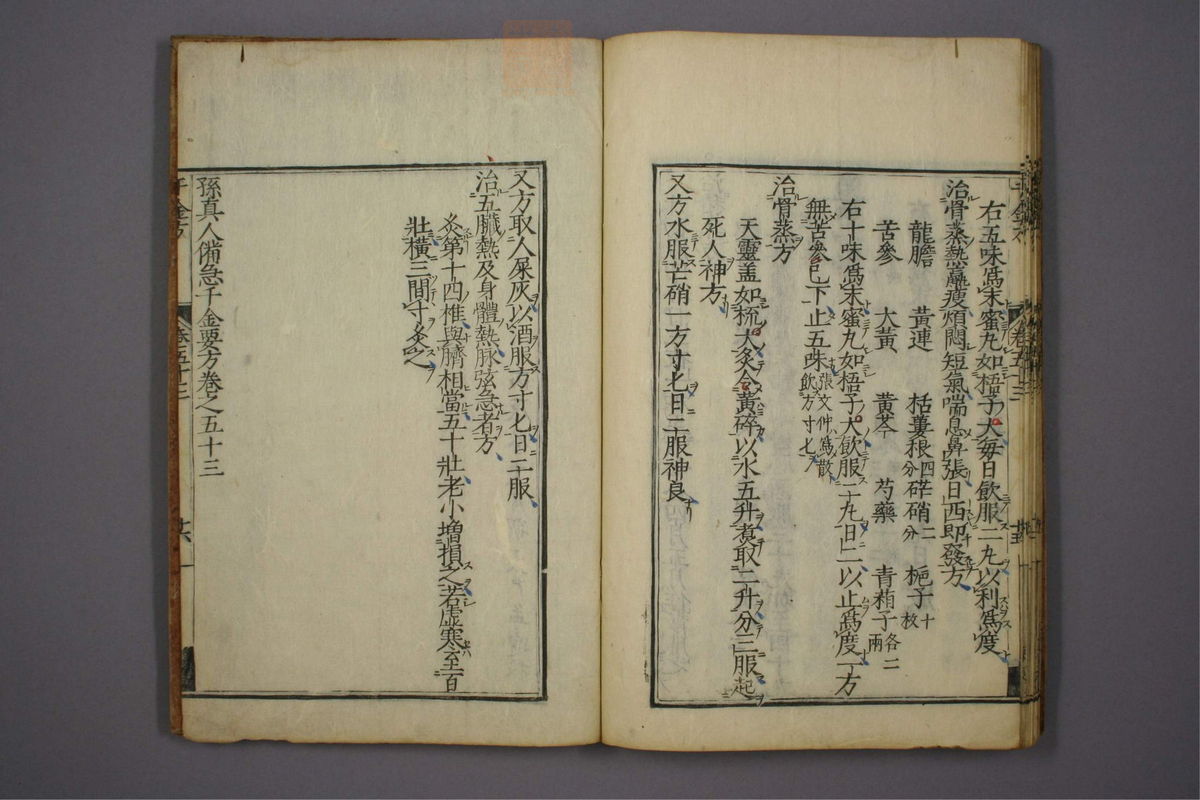 右五味爲末蜜丸如梧子大每日飲服二丸以利爲度
治骨蒸熱羸瘦煩悶短氣喘息鼻張日西即發方
龍膽 黃連 栝蔞根四分 硭硝二分 梔子十枚
苦參 大黃 黃芩 芍藥 青葙子各二兩
右十味爲末蜜丸如梧子大飲服十丸日二以止爲度一方
無苦參已下止五味張文仲爲散飲方寸匕
治骨蒸方
天靈盖如梳大炙令黃碎以水五升煑取二升分三服起
死人神方
又方水服芒硝一方寸匕日二服神良
又方取人屎灰以酒服方寸匕日二服
治五臟熱及身體熱脉弦急者方
灸第十四椎與臍相當五十壯老小增損之若虛寒至百
壯橫三間寸灸之
孫真人備急千金要方卷之五十三
千金方 卷五十三